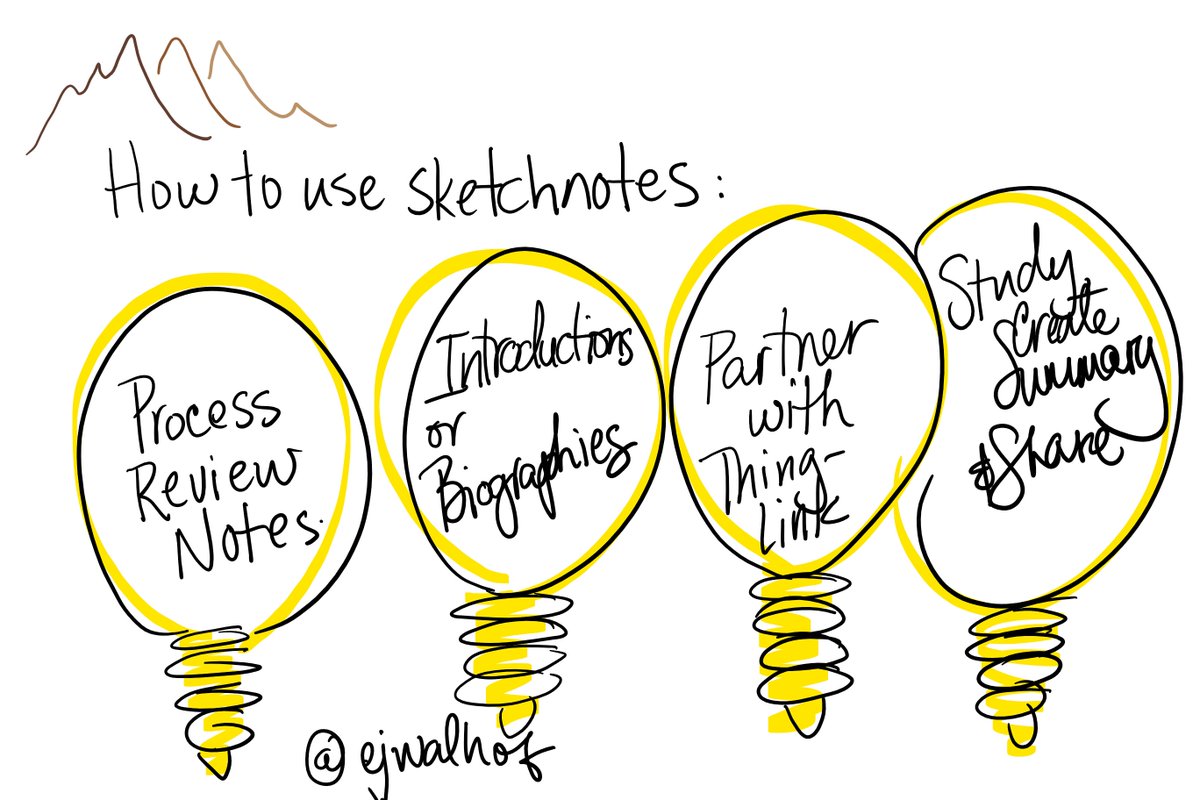 How to use sketchnotes:
Process
Review
Notes.
Introductions
or
Biographies
Partner
with
Thing-
Link
Study
Create
Summary
& Share
@ejwalhof